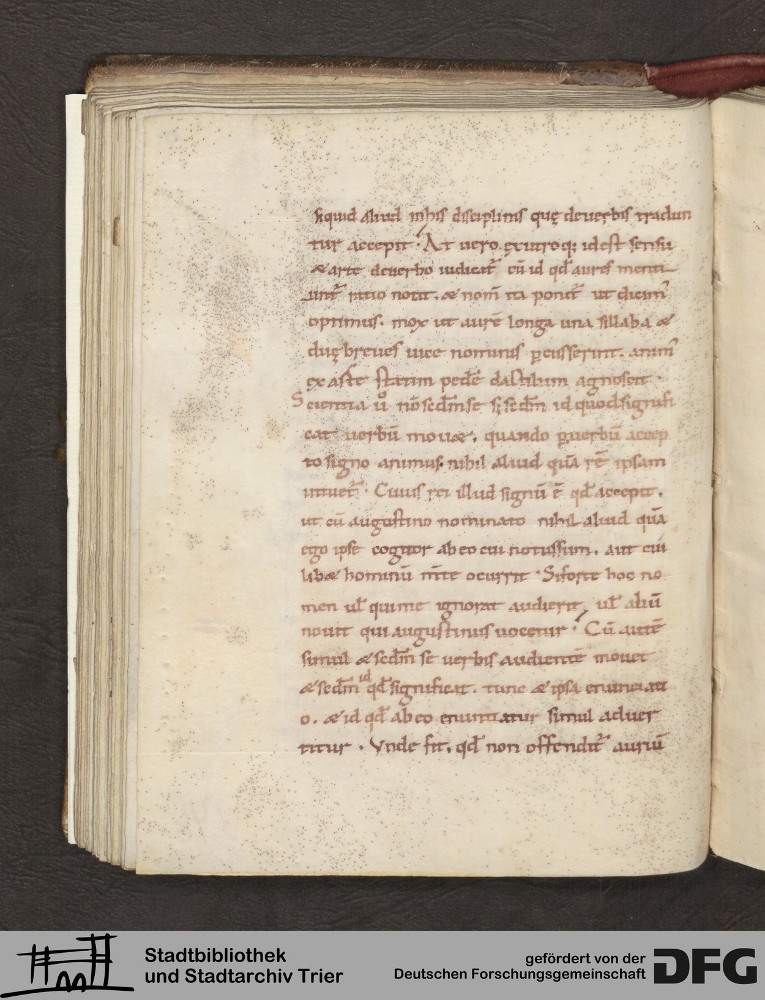 siquid aliud inhis disciplinis quę deuerbis tradun
tur accepit · At uero. ex utroq; idest sensu
& arte deuerbo iudicat̃ cũ id qđ aures menti
unt̃ ratio notat. & nom̃ ita ponit̃ ut dicim̃
optimus. mox ut aurẽ longa una sillaba &
duę breues uice nominis ꝑcusserint. anim̃
ex arte statim pedẽ dactilum agnoscit ·
Scientia ů nõ secđm se sꝫ secđm id quod signifi
cat uerbũ mouet. quando ꝑ uerbũ accep
to signo animus nihil aliud quã rẽ ipsam
intuet̃ · Cuius rei illud signũ ẽ qđ accepit.
ut cũ augustino nominato nihil aliud quã
ego ipse cogitor ab eo cui notus sum. aut cui
lib& hominũ m̃te ocurrit · Siforte hoc no
men ul̃ qui me ignorat audierit, ul̃ aliũ
nouit qui augustinus uocetur · Cũ autẽ
simul & secđm se uerbis audientẽ mouet
& secđm id qđ significat. tunc & ipsa enunciati
o. & id qđ ab eo enuntiatur simul aduer
titur · Vnde fit. qđ non offendit̃ auriũ
Stadtbibliothek
und Stadtarchiv Trier
gefördert von der
Deutschen Forschungsgemeinschaft
DFG